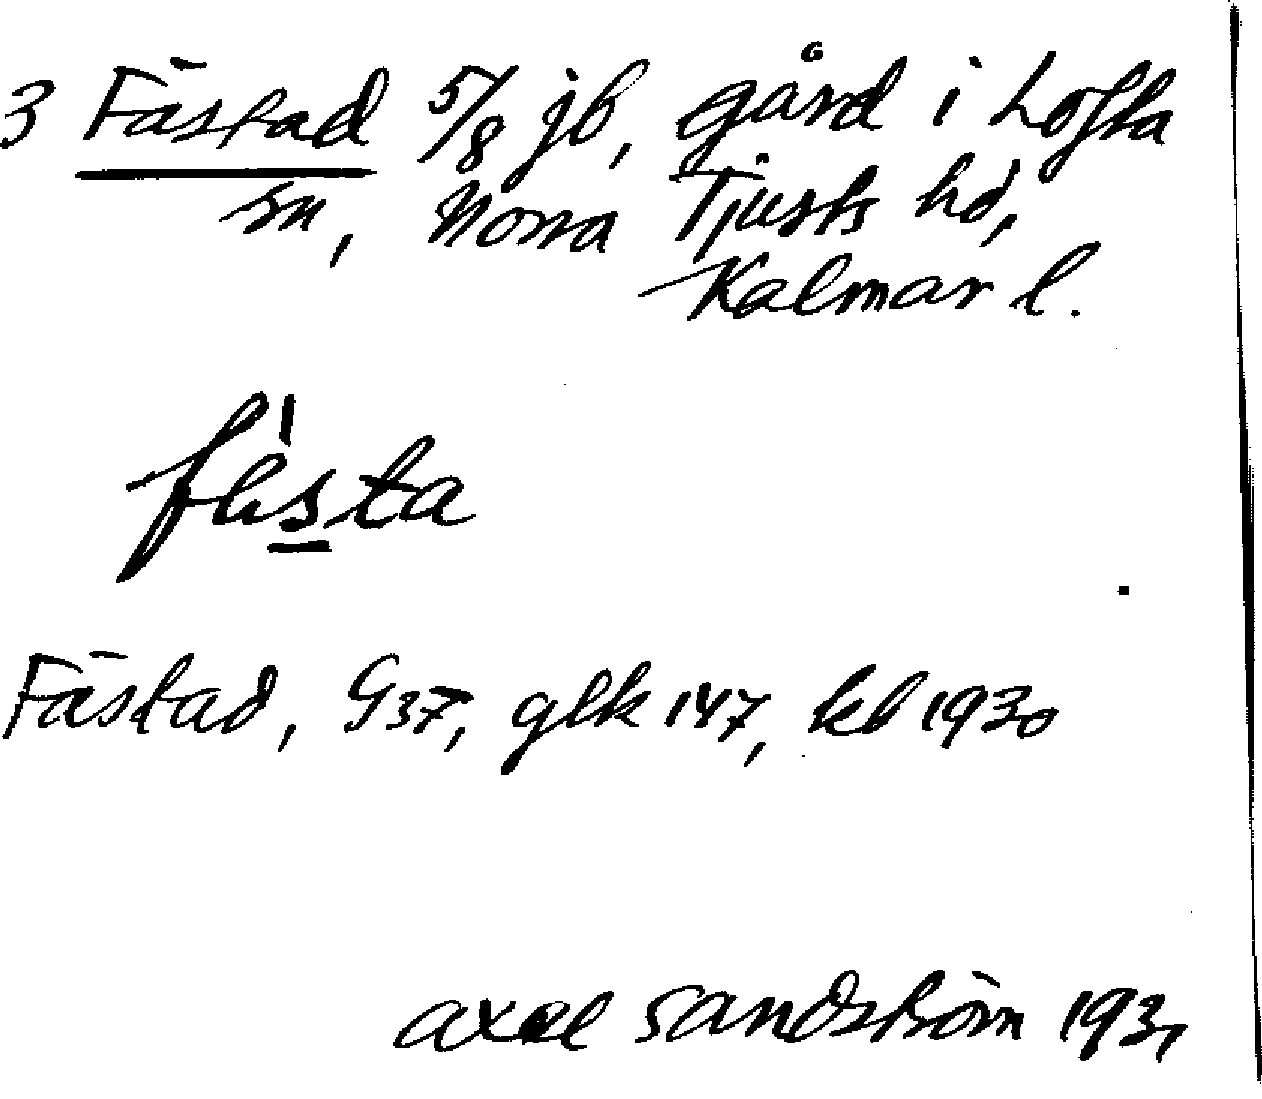 3 Fästad 5/8 jb, gård i Lofta
sn, Norra Tjusts hd,
Kalmar l.
fästa
Fästad, G37, glk 147, kb 1930
Axel Sandström 1931